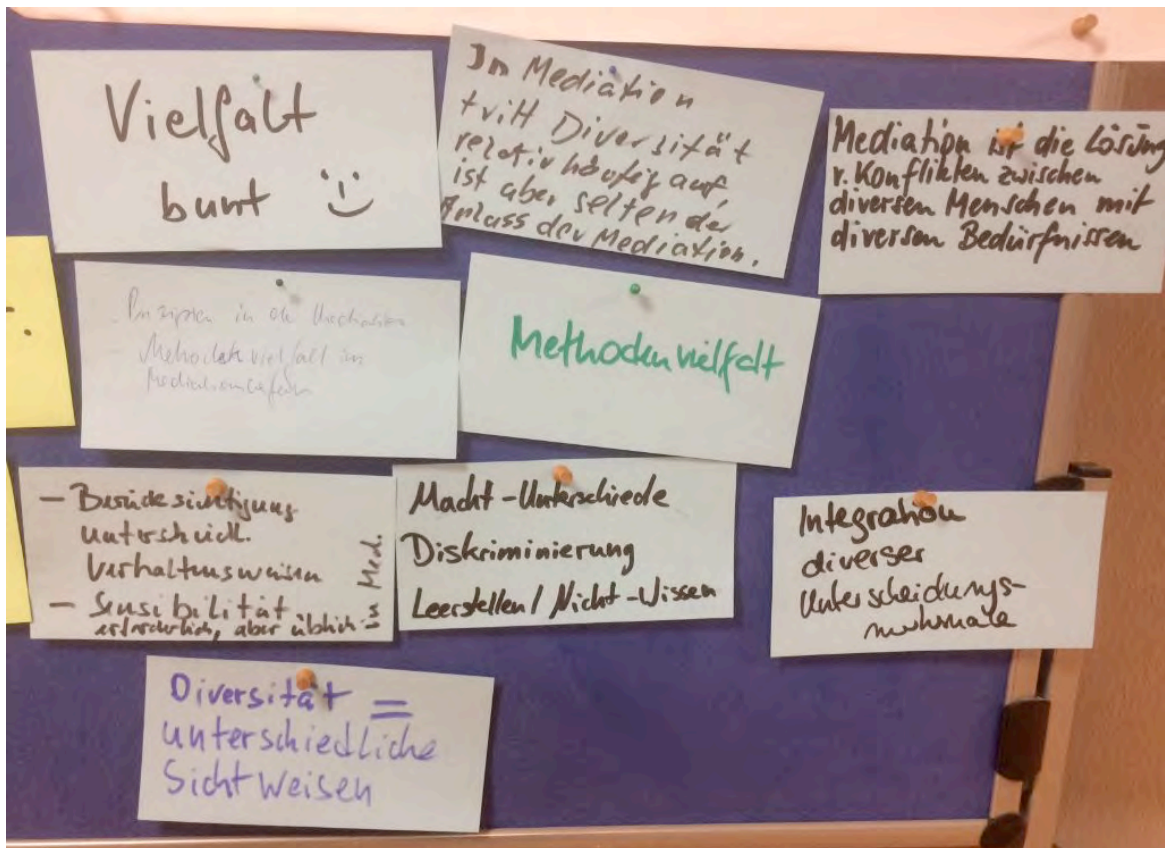 Vielfalt
bunt :)
In Mediation
tritt Diversität
relativ häufig auf,
ist aber selten der
Anlass der Mediation.
Mediation ist die Lösung
v. Konflikten zwischen
diversen Menschen mit
diversen Bedürfnissen
- Prinzipien in der Mediation
- Methodenvielfalt im
Methodenvielfalt
- Berücksichtigung
unterschiedl.
Verhaltensweisen
- Sensibilität
erforderlich, aber üblich in Med.
Macht-Unterschiede
Diskriminierung
Leerstellen / Nicht-Wissen
Integration
diverser
Unterscheidungs-
merkmale
Diversität =
unterschiedliche
Sichtweisen